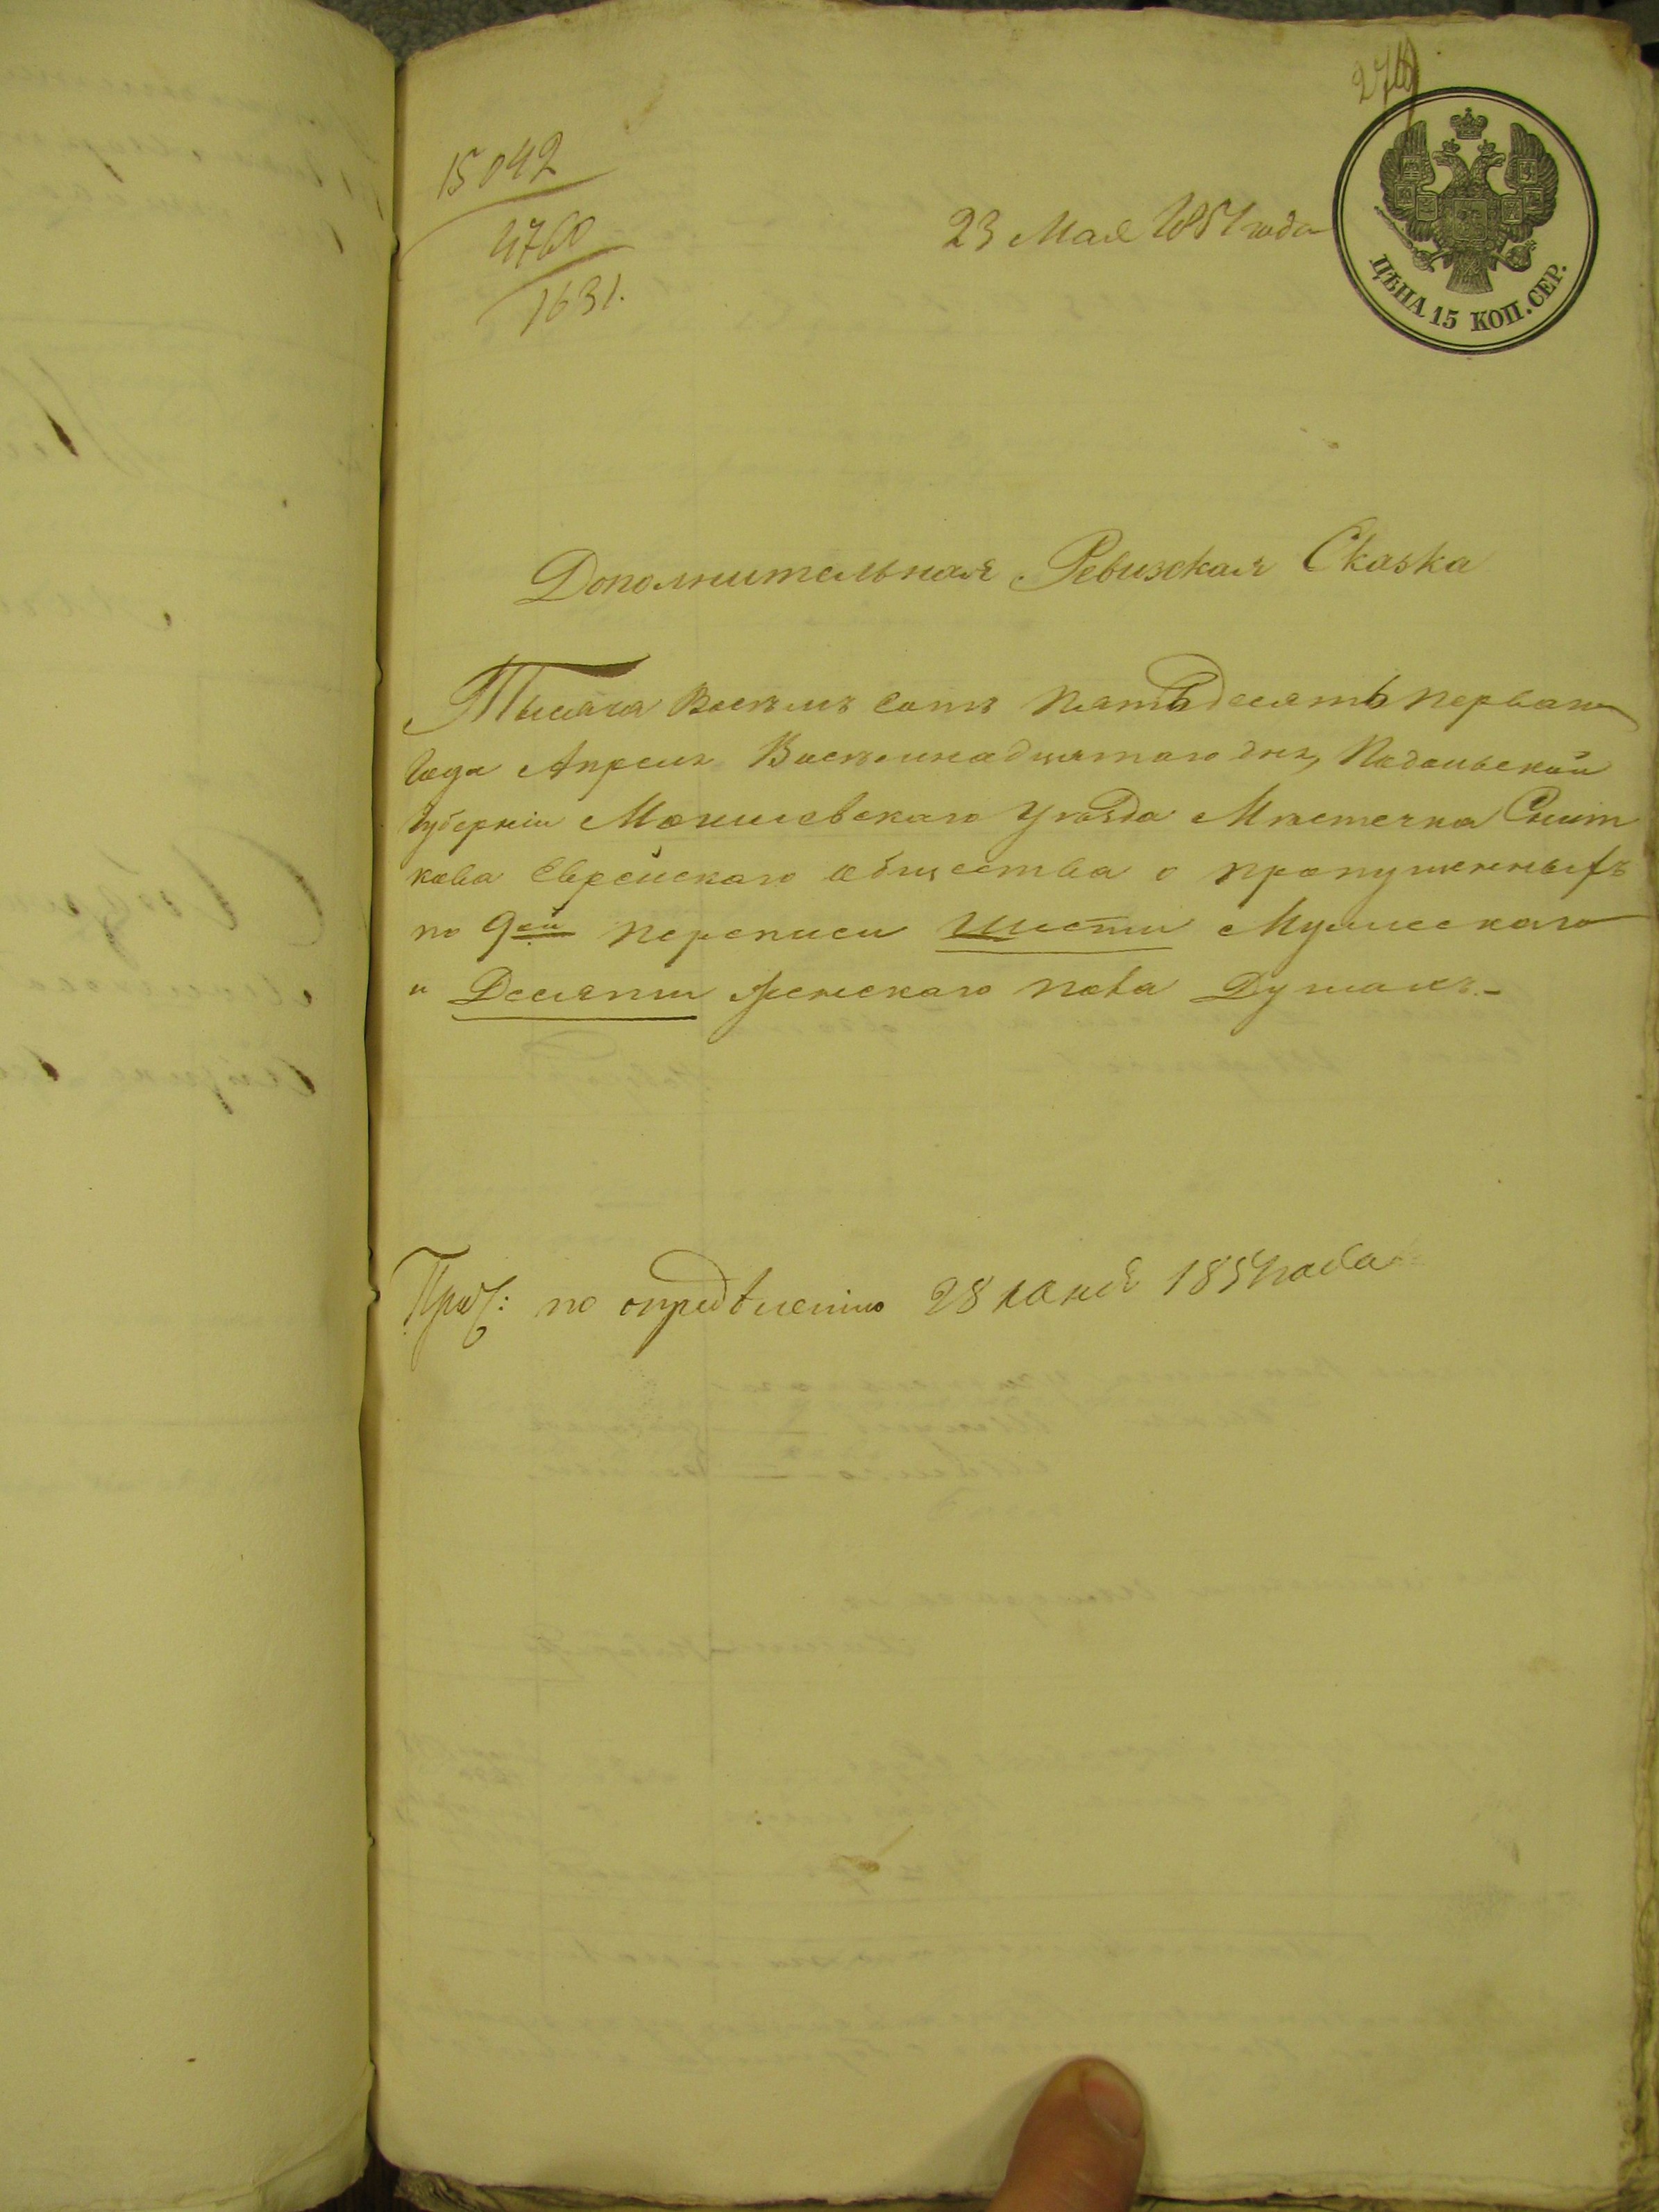 15042
4760
1631.
23 Мая 1851 года
ЦѢНА 15 КОП. СЕР.
Дополнительная Ревизская Сказка
Тысяча Восемъ Сотъ Пятьдесятъ Перваго
Года Апреля Восемнадцатаго дня, Подольской
Губерніи Могилевскаго Уѣзда Мѣстечка Снит
кова Еврейскаго общества о пропущенныхъ
по 9ей переписи Шести Мужескаго
и Десяти Женскаго пола Душахъ.-
по опредѣленію 28 1851 года